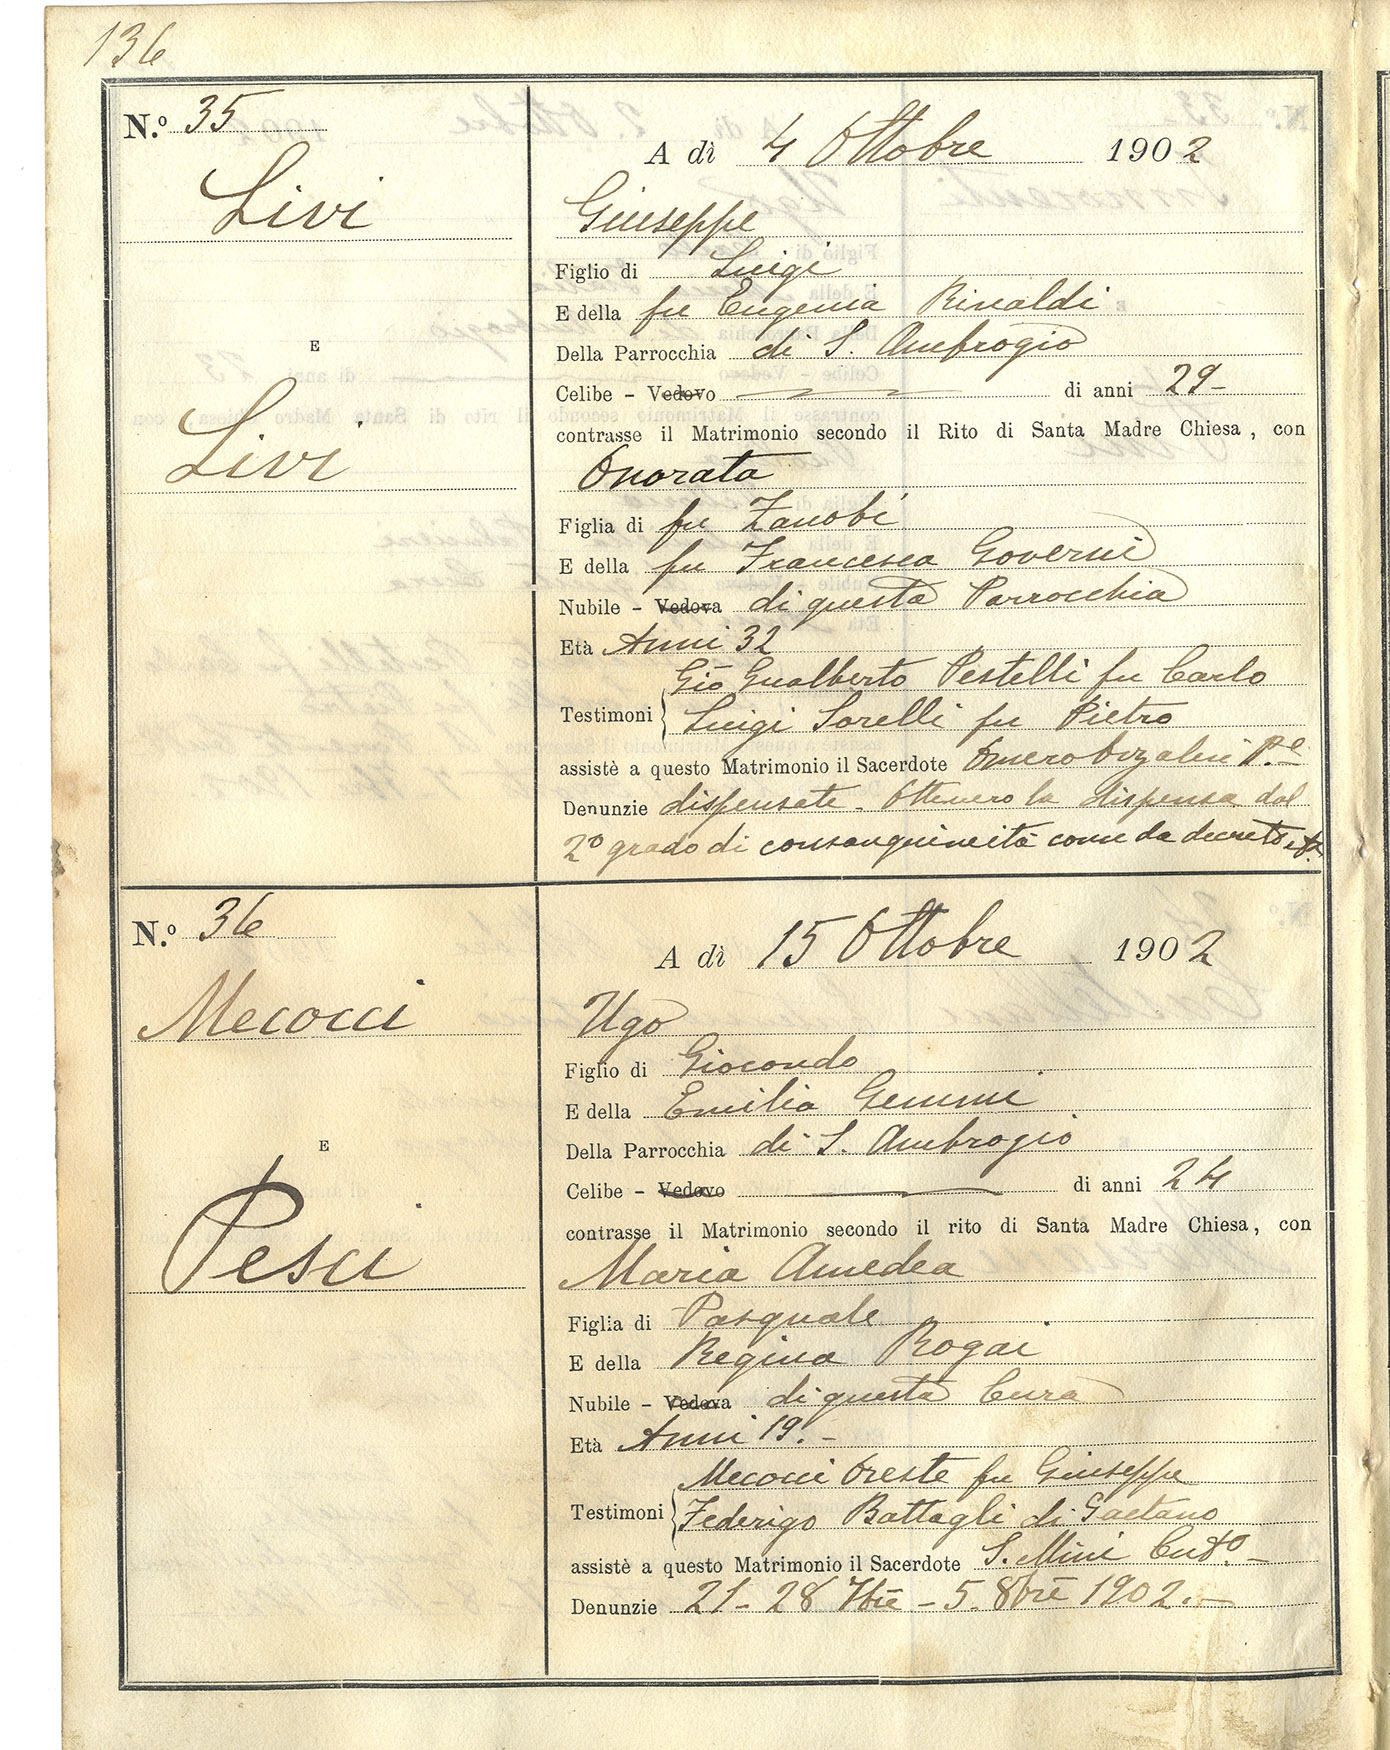 136
N.º 35
Livi
E
Livi
A dì 4 Ottobre 1902
Giuseppe
Figlio di Luigi
E della fu Eugenia Rinaldi
Della Parrocchia di S. Ambrogio
Celibe - Vedovo di anni 29-
contrasse il Matrimonio secondo il Rito di Santa Madre Chiesa, con
Onorata
Figlia di fu Zanobi
E della fu Francesca Governi
Nubile - Vedova di questa Parrocchia
Età Anni 32
Gio Gualberto Pestelli fu Carlo
Testimoni Luigi Sorelli fu Pietro
assistè a questo Matrimonio il Sacerdote Omero
Denunzie dispensate. Ottenero la dispensa dal
2º grado di consanguineità come da decreto
N.º 36
Mecocci
E
Pesci
A dì 15 Ottobre 1902
Ugo
Figlio di Giocondo
E della Emilia Gemmi
Della Parrocchia di S. Ambrogio
Celibe - Vedovo di anni 24
contrasse il Matrimonio secondo il rito di Santa Madre Chiesa, con
Maria Amedea
Figlia di Pasquale
E della Regina Rogai
Nubile - Vedova di questa Cura
Età Anni 19.-
Mecocci Oreste fu Giuseppe
Testimoni Federigo Battagli di Gaetano
assistè a questo Matrimonio il Sacerdote S. Mini
Denunzie 21 - 28 7bre - 5. 8bre 1902.-